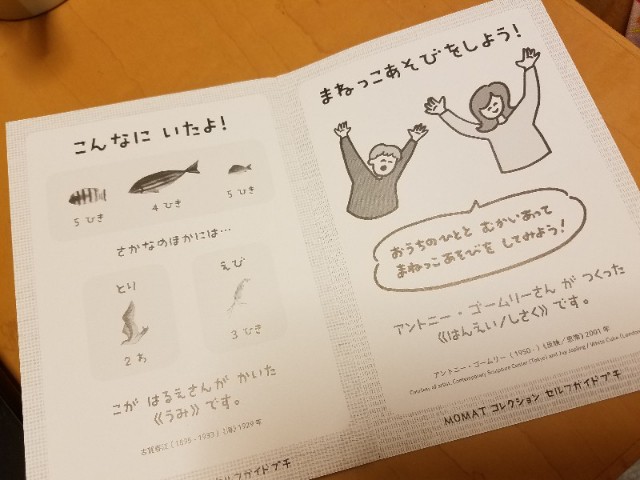 こんなに いたよ!
5 ひき
4 ひき
5 ひき
さかなのほかには…
とり
えび
2 わ
3 びき
こが はるえさんが かいた
《うみ》です。
古賀春江(1895-1933)《海》1929年
セルフガイドプチ
まねっこあそびをしよう!
おうちのひとと むかいあって
まねっこあそびを してみよう!
アントニー・ゴームリーさん が つくった
《はんえい/しさく》です。
アントニー・ゴームリー(1950-)《反映/思索》2001年
Courtesy of artist, Contemporary Sculpture Center (Tokyo) and Jay Jopling / White Cube (London
MOMAT コレクション セルフガイドプチ